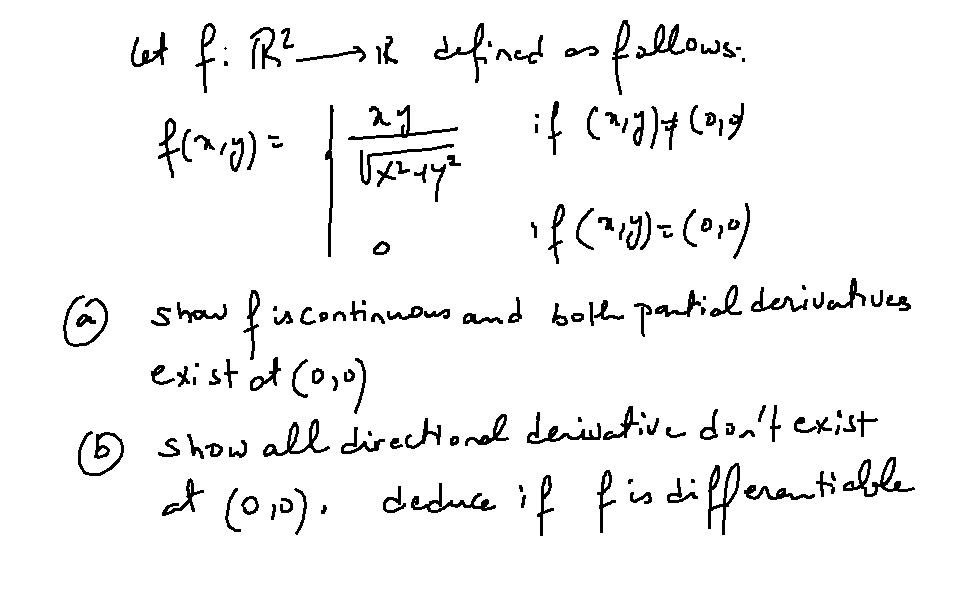 let f: ℝ² → ℝ defined as follows:
f(x,y) = | xy / √(x²+y²) if (x,y) ≠ (0,0)
0 if (x,y) = (0,0)
(a) show f is continuous and both partial derivatives
exist at (0,0)
(b) show all directional derivative don't exist
at (0,0). deduce if f is differentiable